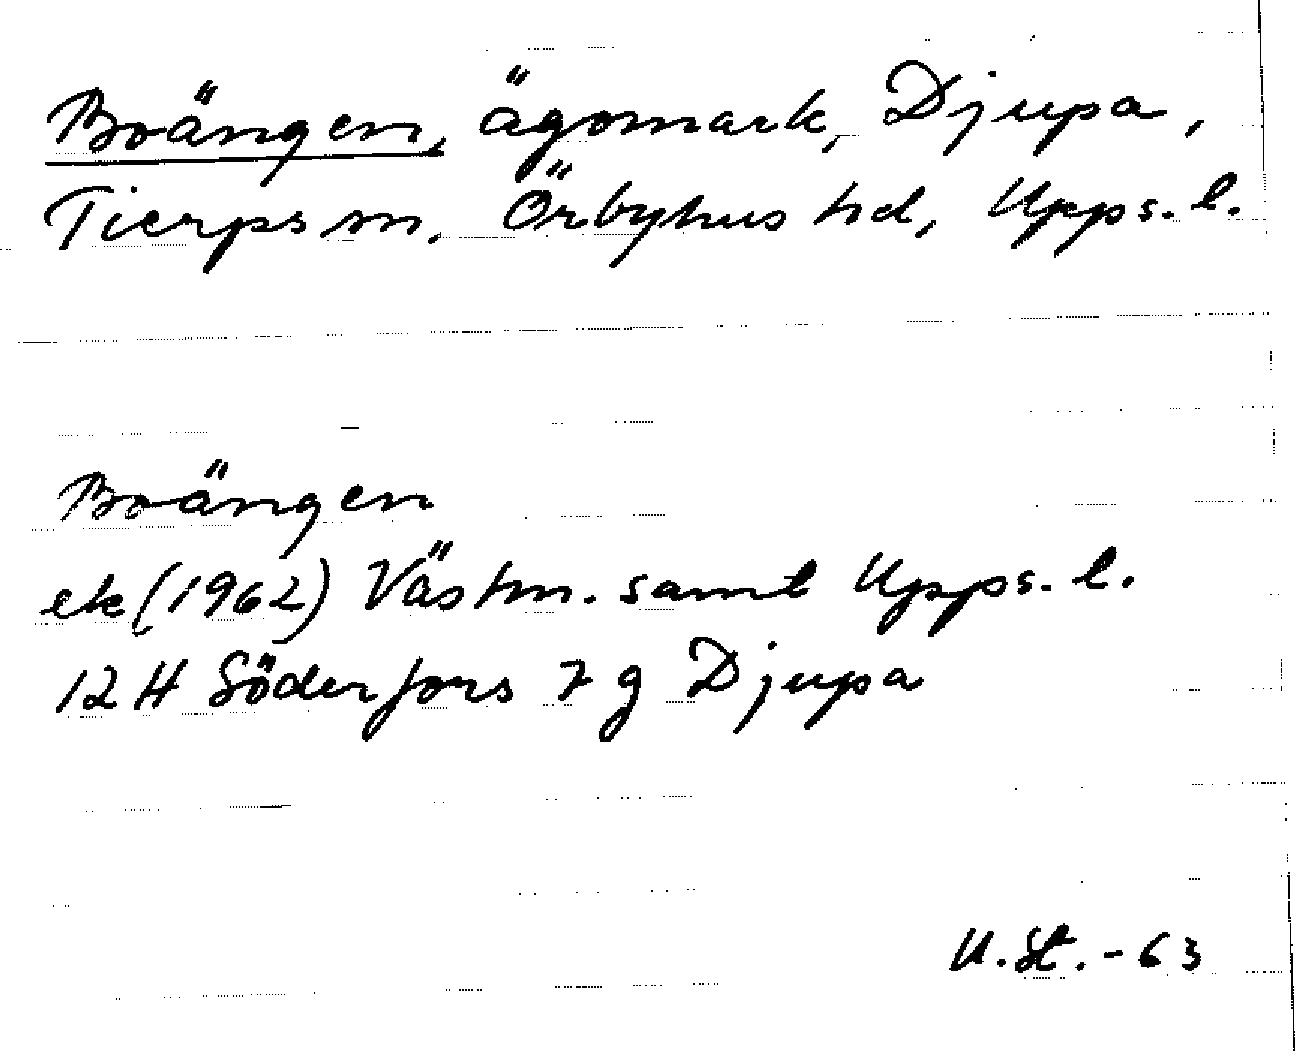 Boängen, ägomark, Djupa,
Tierps sn. Örbyhus hd, Upps. l.
Boängen
ek (1962) Västm. samt Upps. l.
12 H Söderfors 7 g Djupa
U. St. - 63